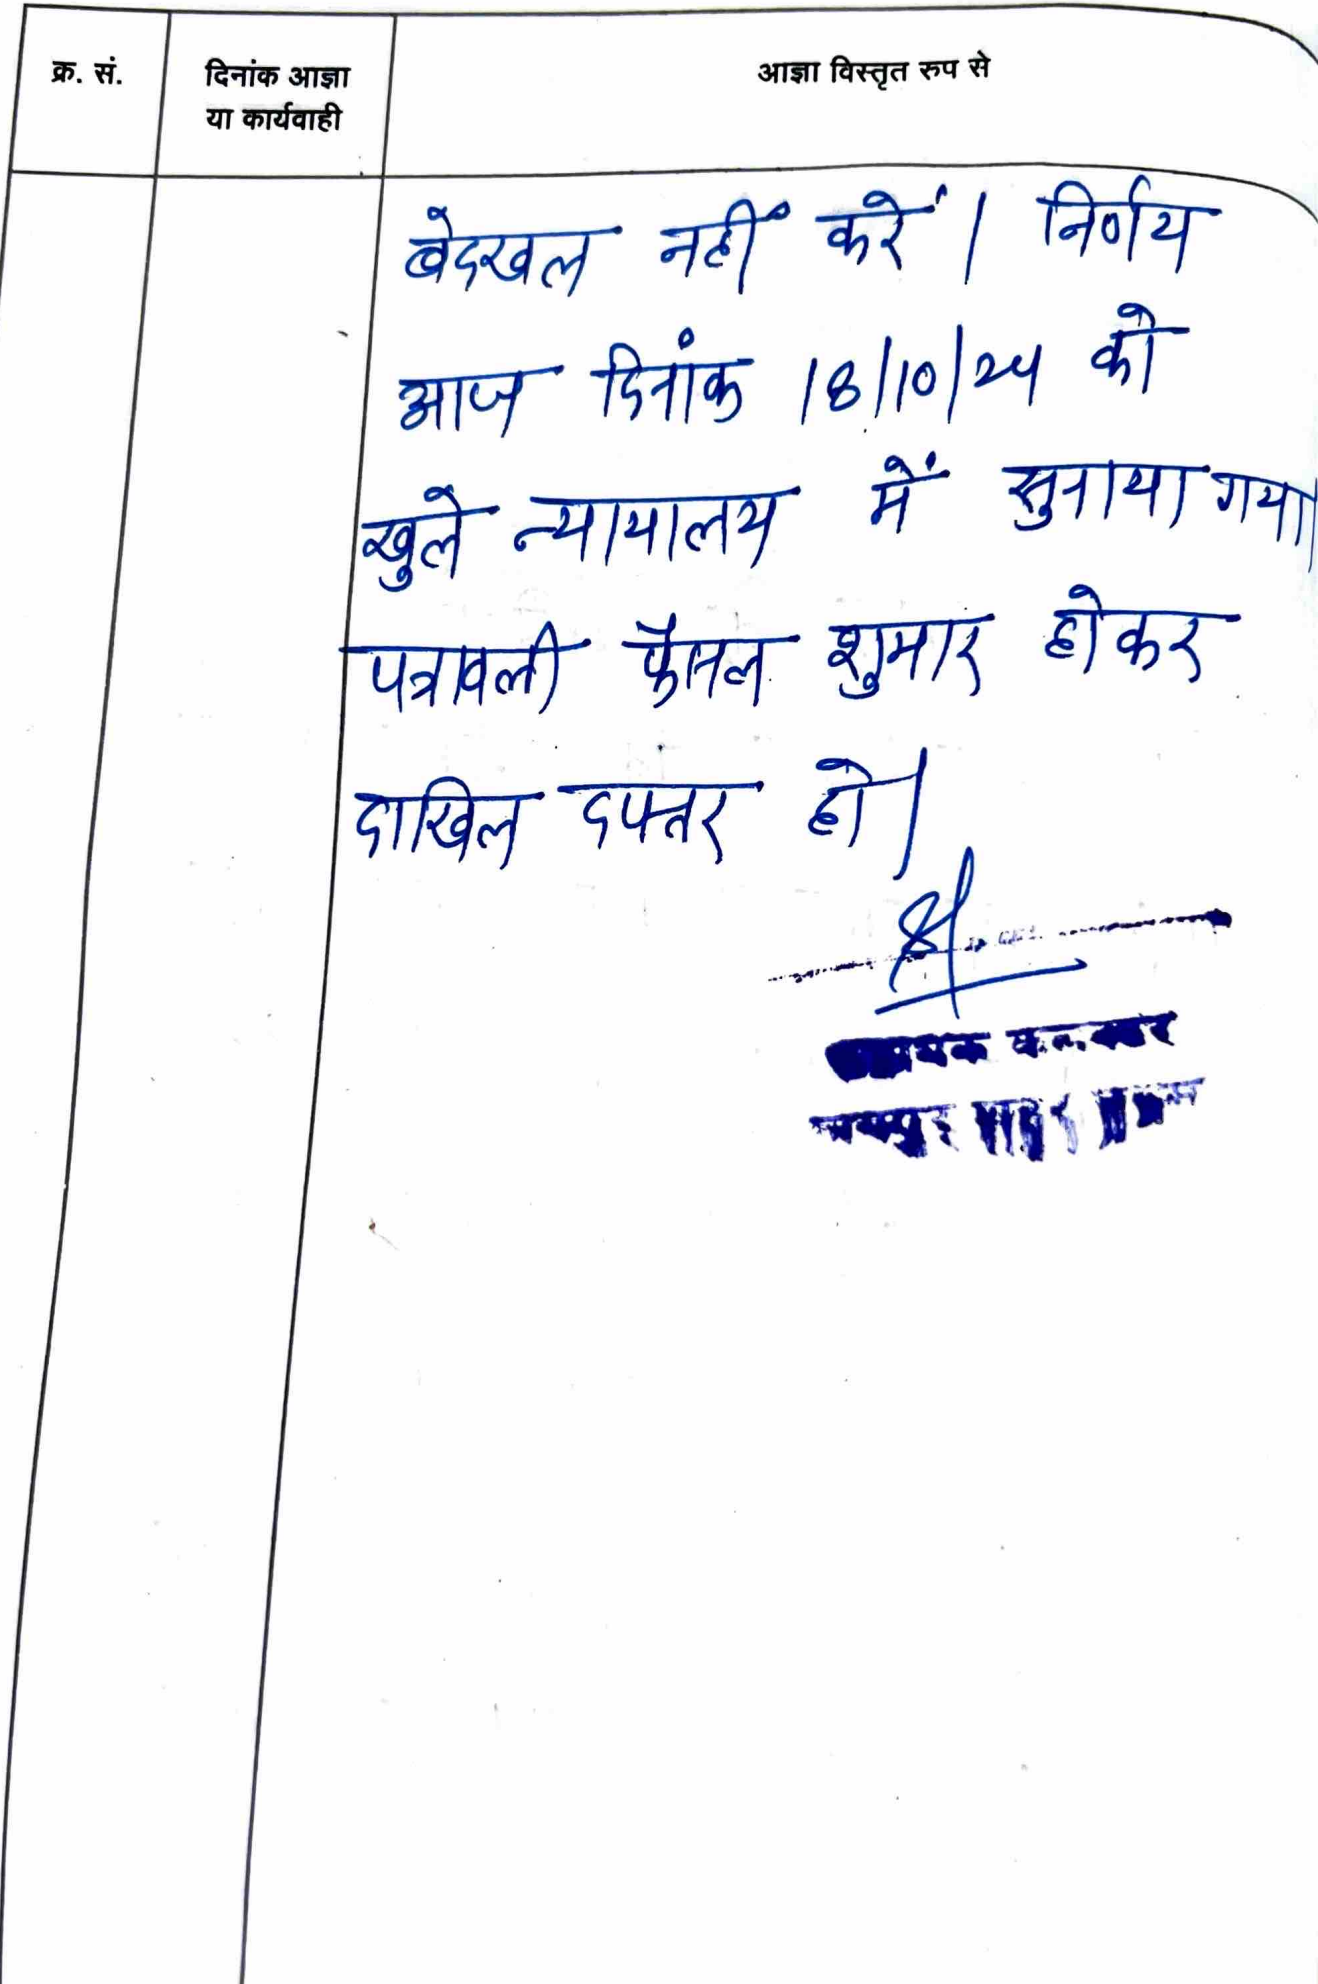 क्र. सं.
दिनांक आज्ञा
या कार्यवाही
आज्ञा विस्तृत रुप से
बेदखल नहीं करें। निर्णय
आज दिनांक 18/10/24 को
खुले न्यायालय में सुनाया गया।
पत्रावली फैसल शुमार होकर
दाखिल दफ्तर हो।